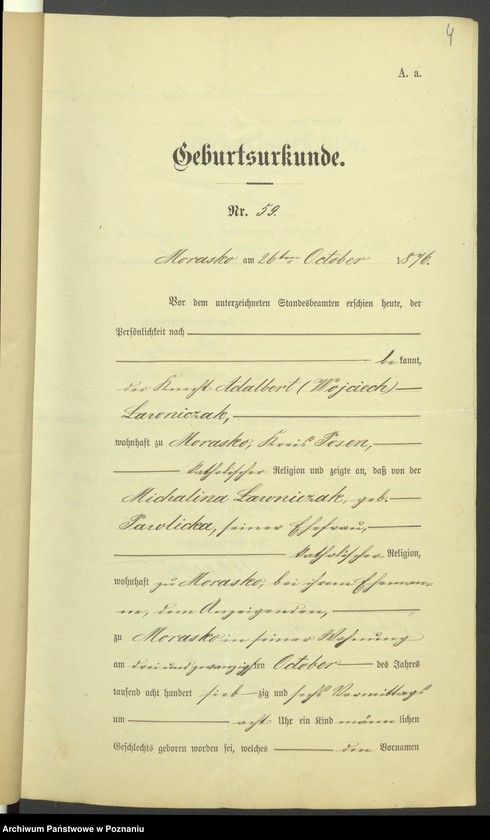 4
A. a.
Geburtsurkunde.
Nr. 59.
Morasko am 26ten October 1876.
Vor dem unterzeichneten Standesbeamten erschien heute, der
Persönlichkeit nach
bekannt,
der Knecht Adalbert (Wojciech)
Lawniczak,
wohnhaft zu Morasko, Kreis Posen,
katholischer Religion und zeigte an, daß von der
Michalina Lawniczak, geb.
Pawlicka, seiner Ehefrau,
katholischer Religion,
wohnhaft zu Morasko, bei ihrem Eheman-
ne, dem Anzeigenden,
zu Morasko in seiner Wohnung
am dreiundzwanzigsten October des Jahres
tausend acht hundert siebzig und sechs Vormittags
um acht Uhr ein Kind männlichen
Geschlechts geboren worden sei, welches den Vornamen
Archiwum Państwowe w Poznaniu